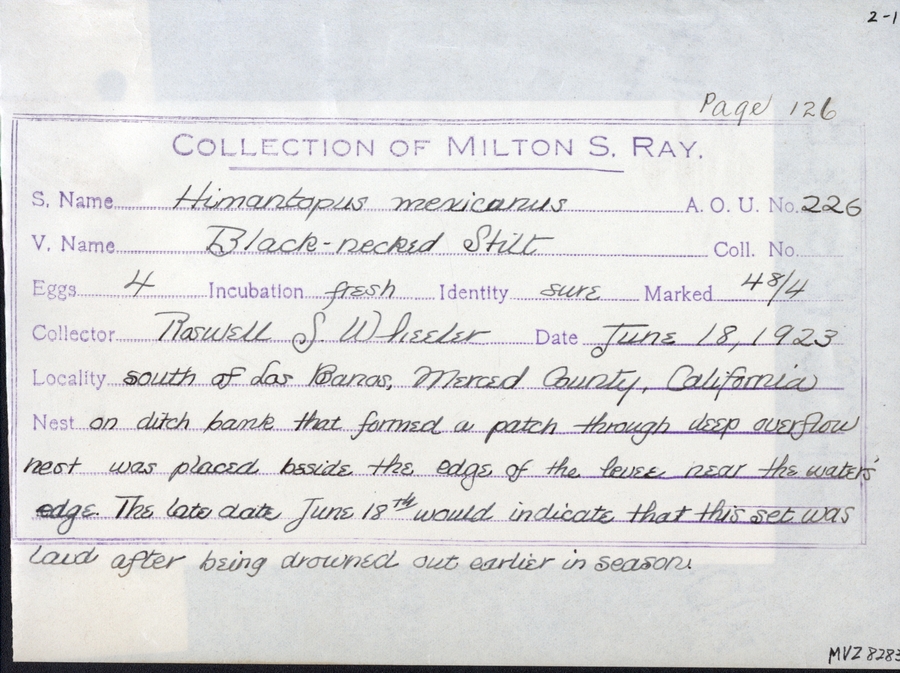 2-1
Page 126
COLLECTION OF MILTON S. RAY.
S. Name Himantopus mexicanus A. O. U. No. 226
V. Name Black-necked Stilt Coll. No.
Eggs 4 Incubation fresh Identity sure Marked 48/4
Collector Roswell S Wheeler Date June 18, 1923
Locality south of Los Banos, Merced County, California
Nest on ditch bank that formed a patch through deep overflow
nest was placed beside the edge of the levee near the waters'
edge. The late date June 18th would indicate that this set was
laid after being drowned out earlier in season.
MVZ 8283